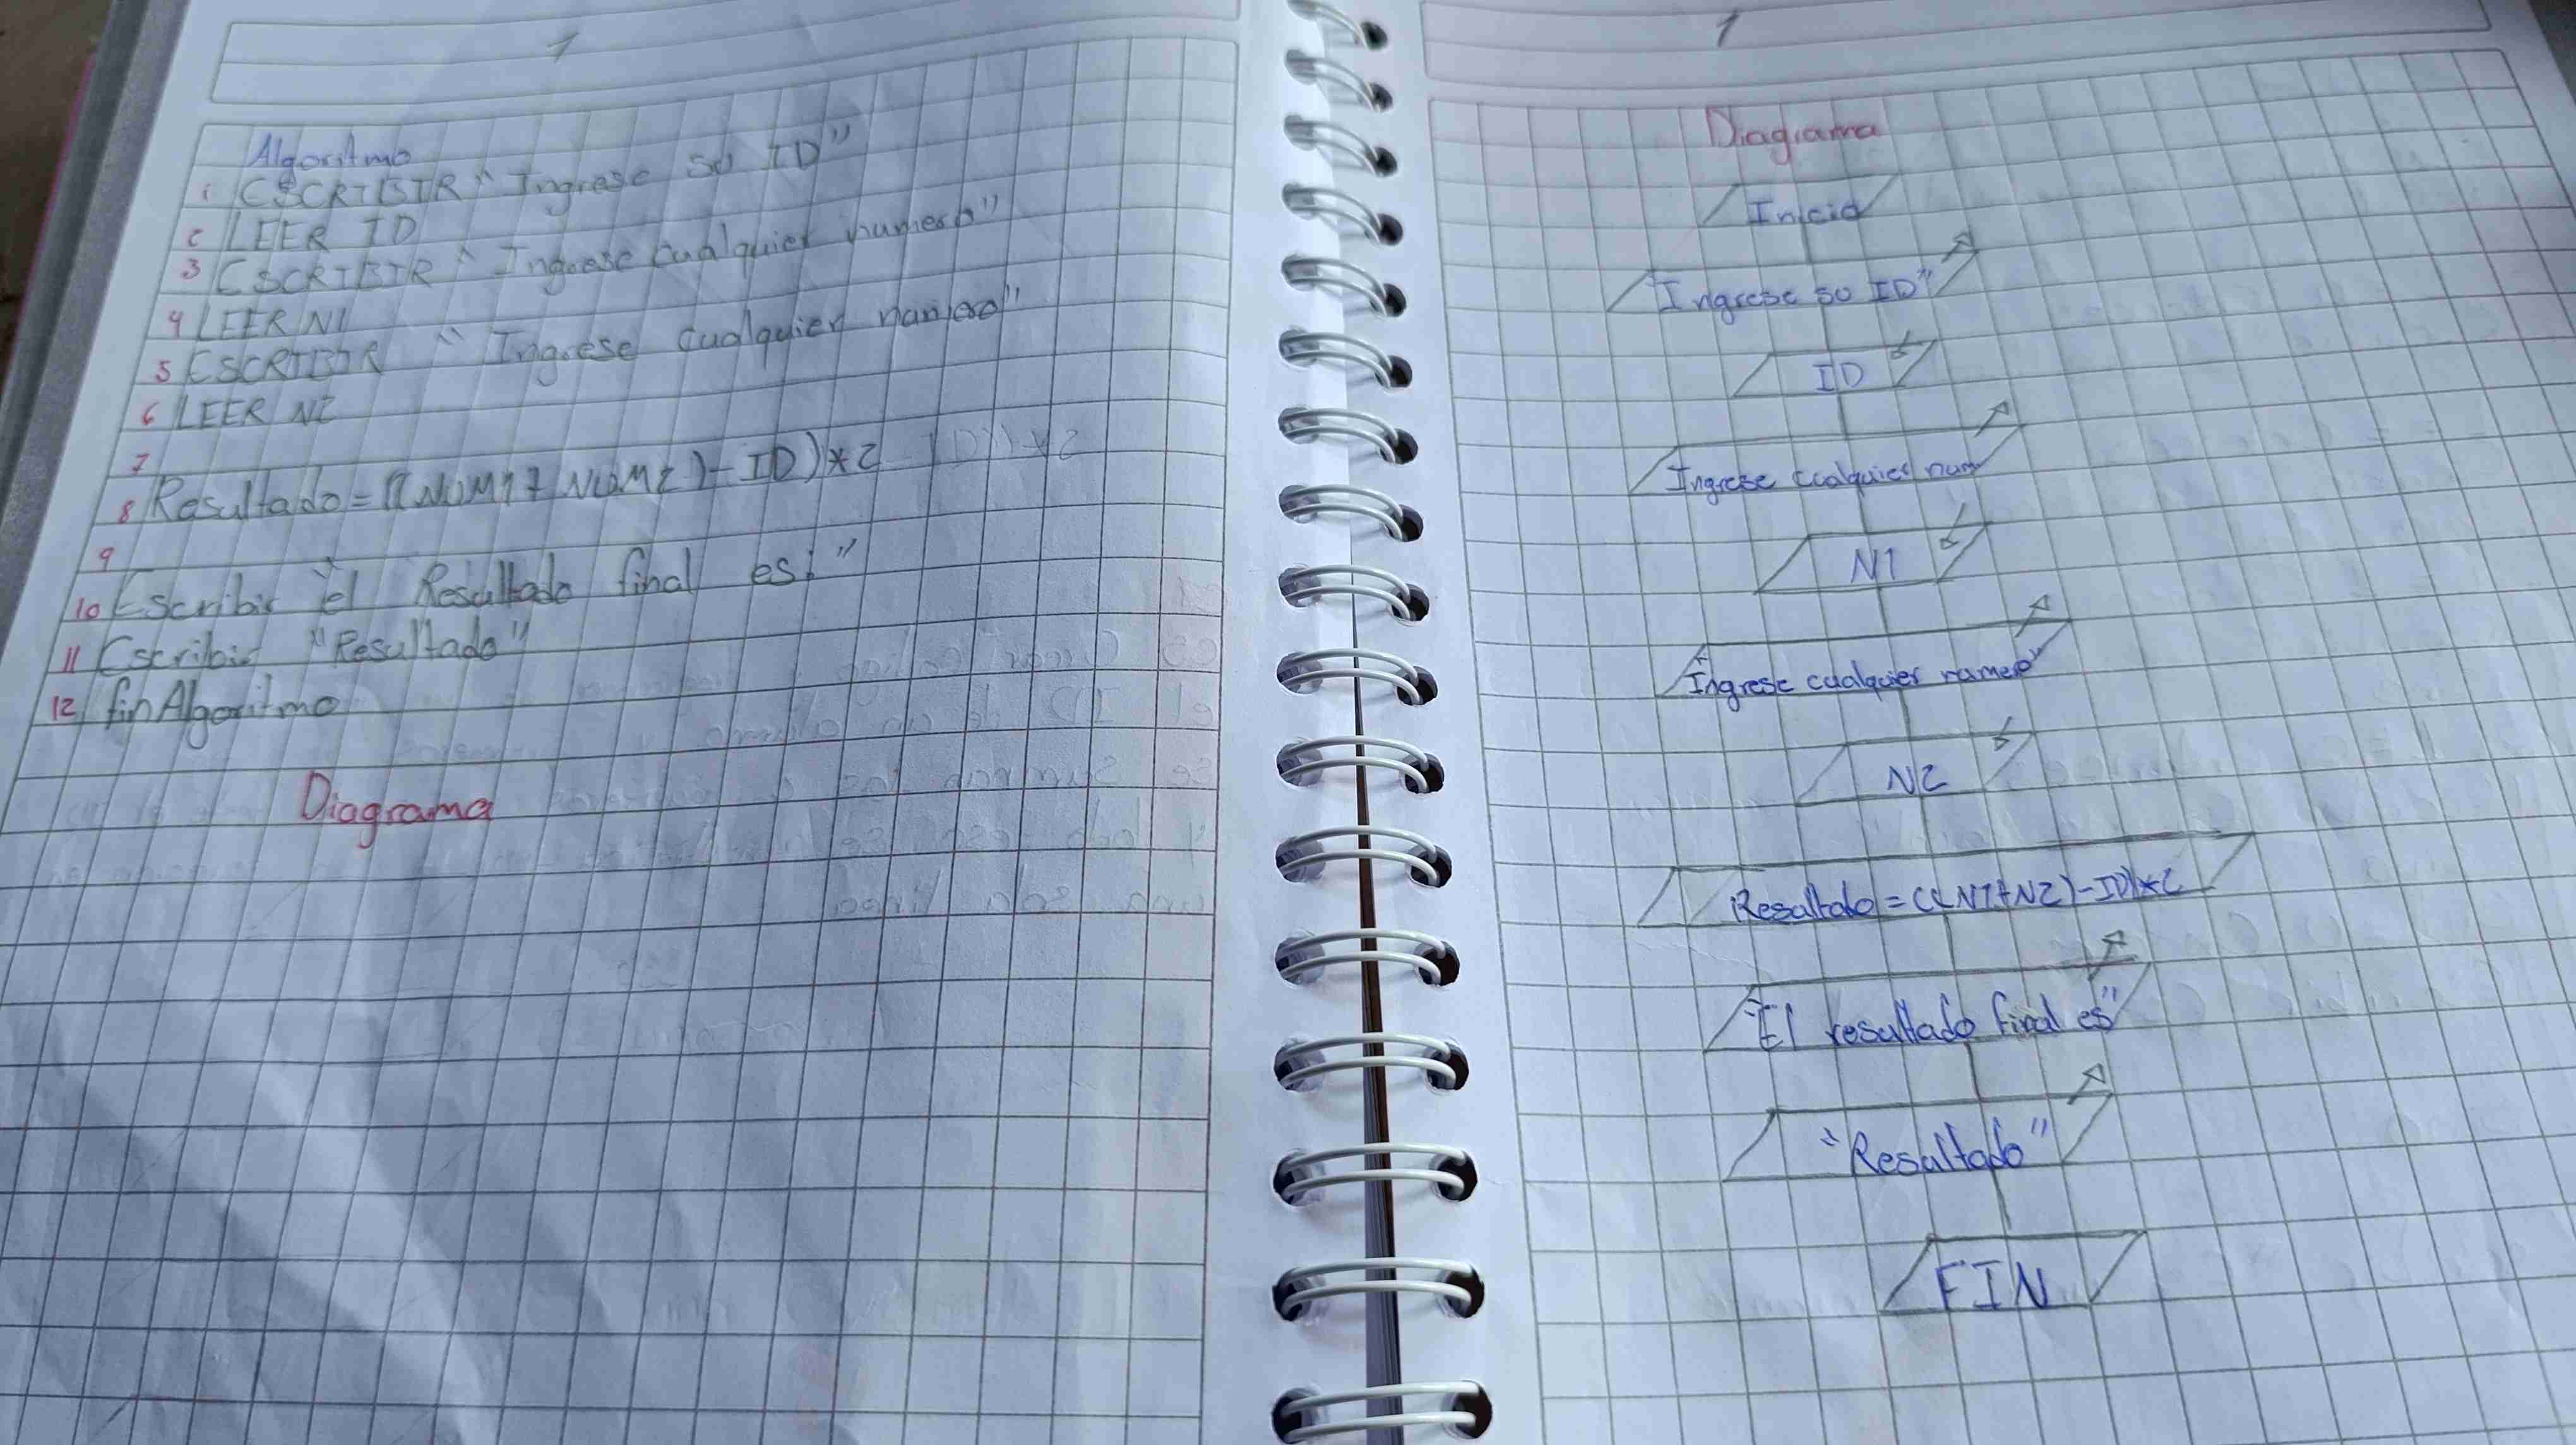 1
Algoritmo
1 ESCRIBIR "Ingrese su ID"
2 LEER ID
3 ESCRIBIR "Ingrese cualquier numero"
4 LEER N1
5 ESCRIBIR "Ingrese cualquier numero"
6 LEER N2
7
8 Resultado = ((NUM1 + NUM2) - ID) * 2
9
10 Escribir "el Resultado final es:"
11 Escribir "Resultado"
12 finAlgoritmo
Diagrama
1
Diagrama
Inicio
"Ingrese su ID"
ID
Ingrese cualquier num
N1
"Ingrese cualquier numero"
N2
Resultado = ((N1+N2)-ID)*2
"El resultado final es"
"Resultado"
FIN